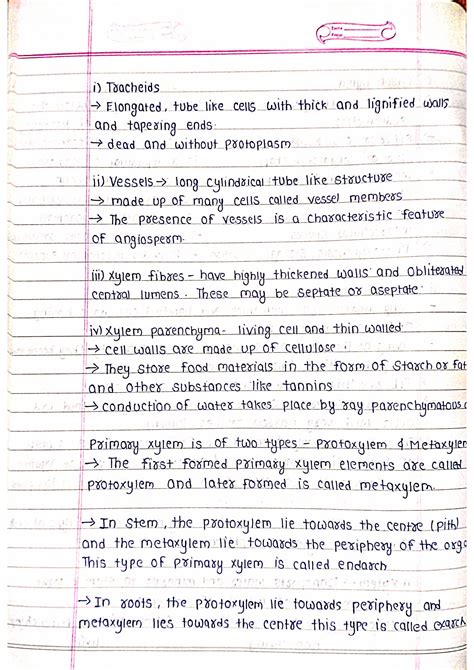 i) Tracheids
→ Elongated, tube like cells with thick and lignified walls
and tapering ends.
→ dead and without protoplasm
ii) Vessels → long cylindrical tube like structure
→ made up of many cells called vessel members
→ The presence of vessels is a characteristic feature
of angiosperm.
iii) Xylem fibres - have highly thickened walls and obliterated
central lumens. These may be septate or aseptate.
iv) Xylem parenchyma - living cell and thin walled
→ cell walls are made up of cellulose.
→ They store food materials in the form of starch or fat
and other substances like tannins
→ conduction of water takes place by ray parenchymatous
Primary xylem is of two types - Protoxylem & Metaxylem
→ The first formed primary xylem elements are called
protoxylem and later formed is called metaxylem.
→ In stem, the protoxylem lie towards the centre (pith)
and the metaxylem lie towards the periphery of the orga
This type of primary xylem is called endarch
→ In roots, the protoxylem lie towards periphery and
metaxylem lies towards the centre this type is called exarch